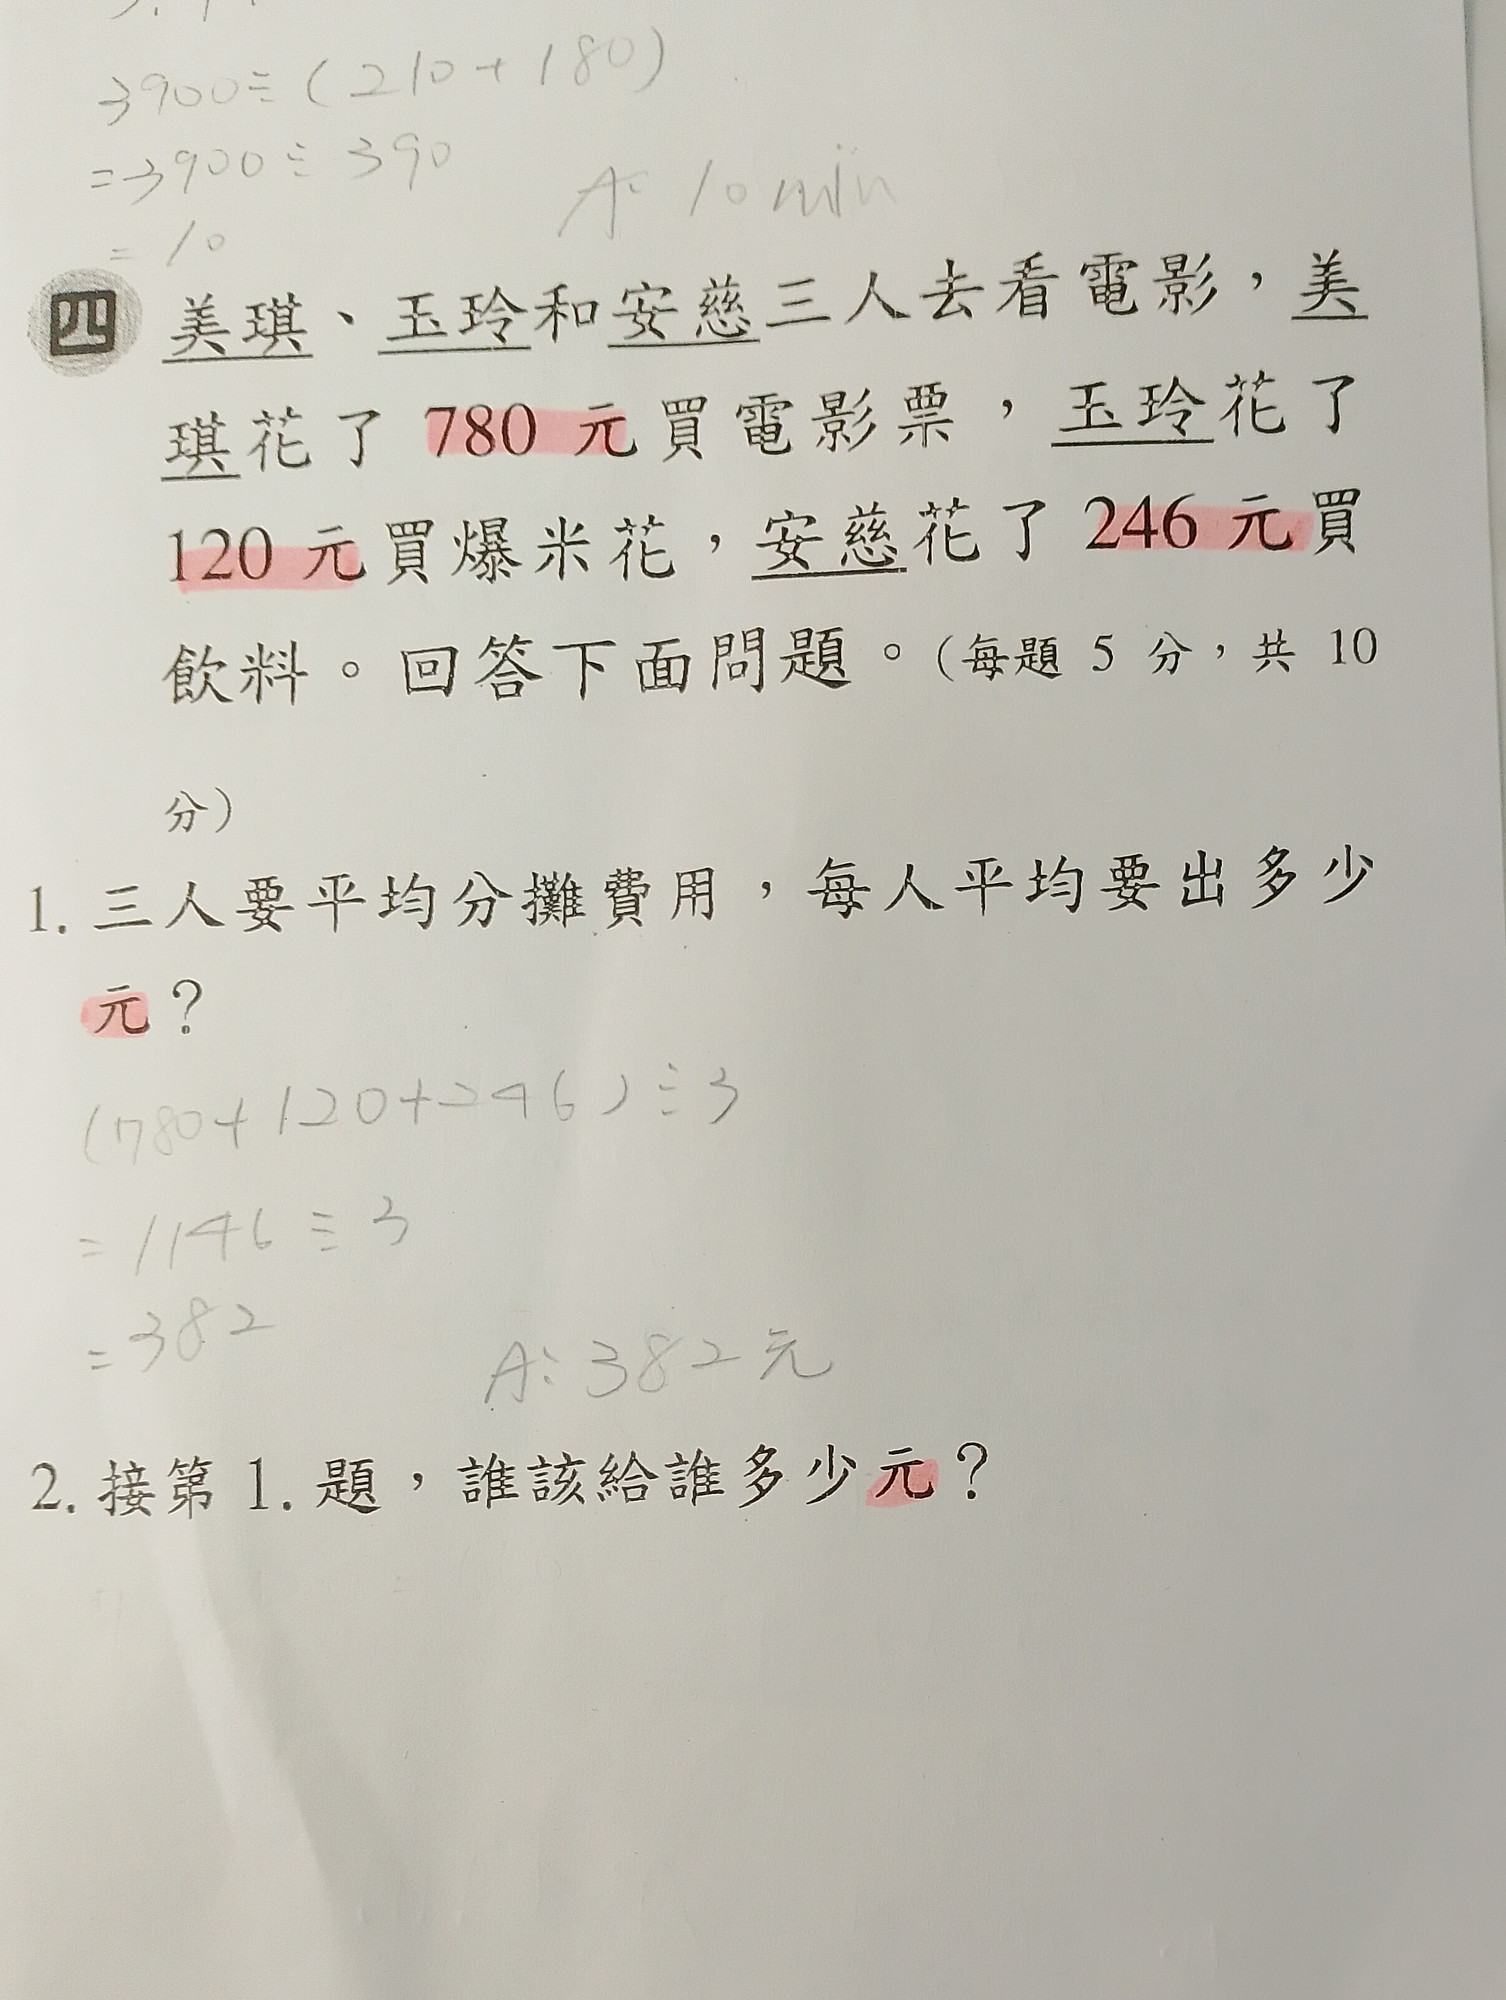 3900÷(210+180)
=3900÷390
=10
A: 10 min
四 美琪、玉玲和安慈三人去看電影，美
琪花了 780 元買電影票，玉玲花了
120 元買爆米花，安慈花了 246 元買
飲料。回答下面問題。(每題 5 分，共 10
分)
1. 三人要平均分攤費用，每人平均要出多少
元？
(780+120+246)÷3
=1146÷3
=382
A: 382元
2. 接第 1. 題，誰該給誰多少元？